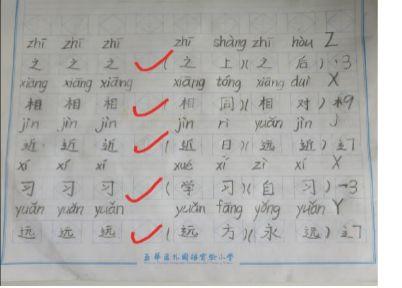 zhī zhī zhī zhī shàng zhī hòu Z
之 之 之 (之 上)(之 后) 丶3
xiāng xiāng xiāng xiāng tóng xiāng duì X
相 相 相 (相 同)(相 对) 木9
jìn jìn jìn jìn rì yuǎn jìn J
近 近 近 (近 日)(远 近) 辶7
xí xí xí xué xí zì xí X
习 习 习 (学 习)(自 习) 乛3
yuǎn yuǎn yuǎn yuǎn fāng yǒng yuǎn Y
远 远 远 (远 方)(永 远) 辶7